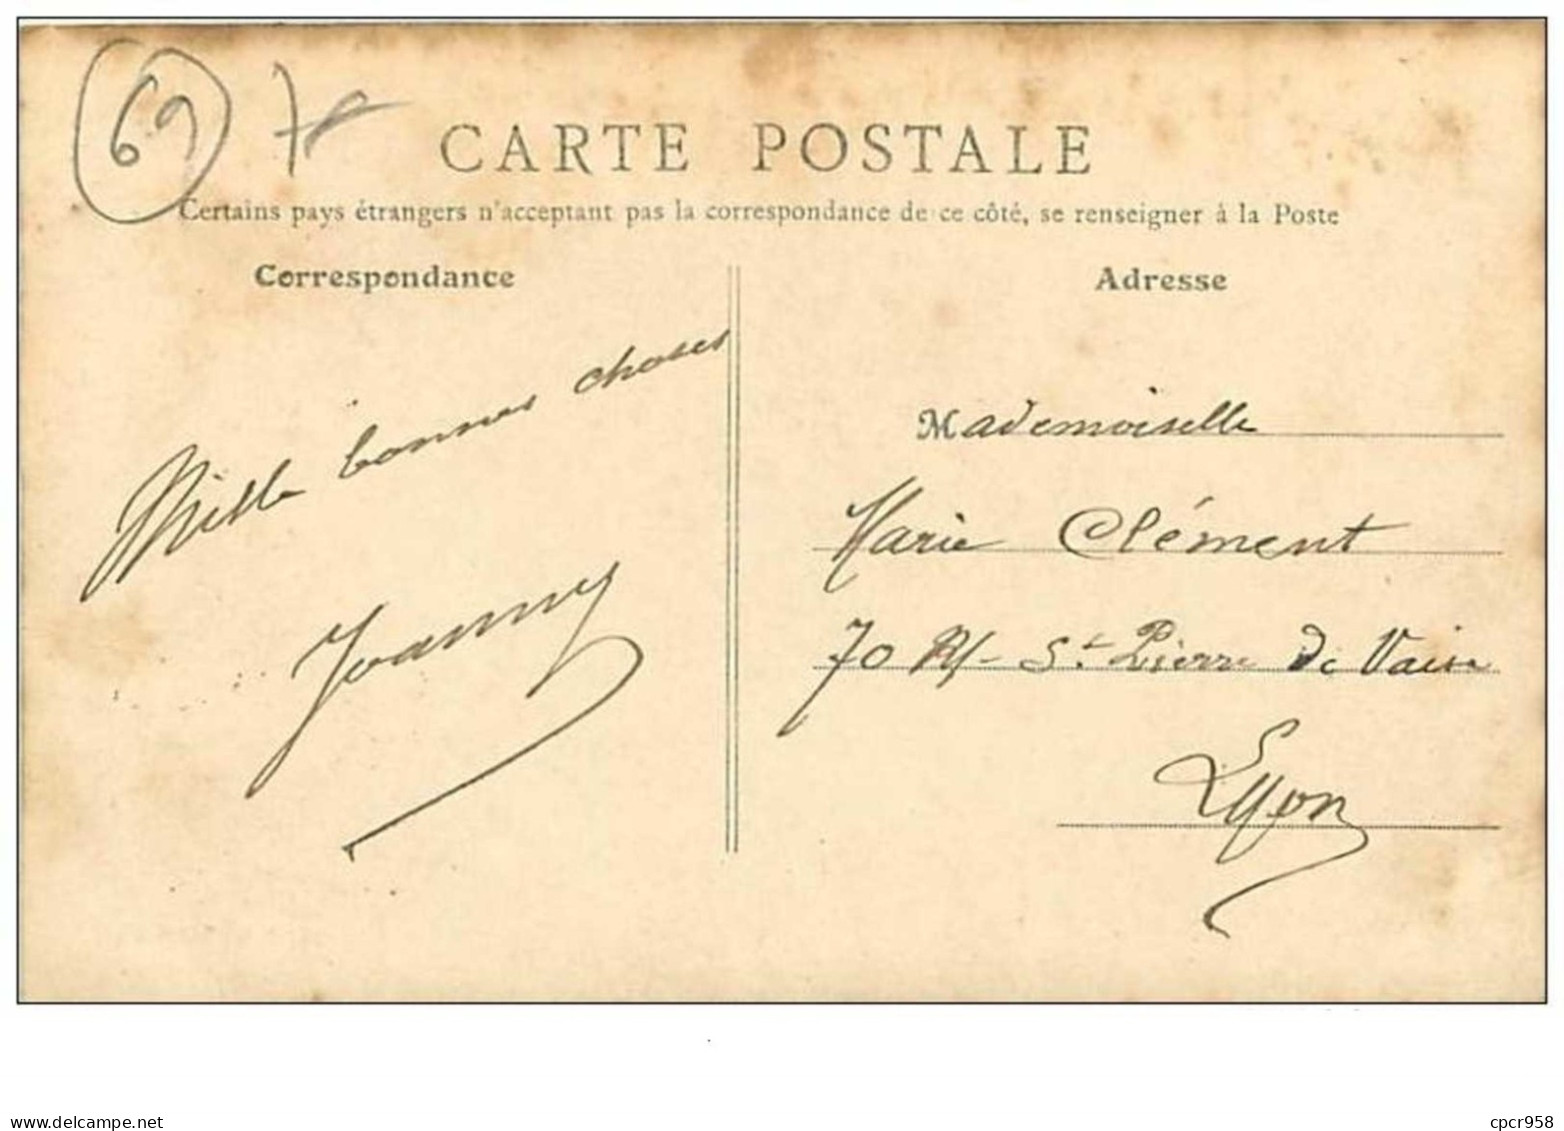 69 7
CARTE POSTALE
Certains pays étrangers n'acceptant pas la correspondance de ce côté, se renseigner à la Poste
Correspondance
Adresse
Mille bonnes choses
Joanny
Mademoiselle
Marie Clément
70 R/- St Pierre de Vaise
Lyon
www.delcampe.net
cpcr958